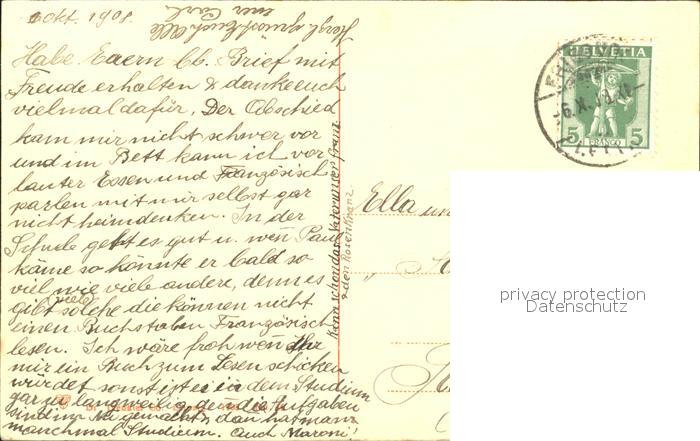 Okt. 1908
Herzl. grüsst Euch Alle
euer Carl.
Habe Euern lb. Brief mit
Freude erhalten & danke euch
vielmal dafür. Der Abschied
kam mir nicht schwer vor
und im Bett kann ich vor
lauter Essen und Französisch
parlen mit mir selbst gar
nicht heimdenken. In der
Schule geht es gut u. wen Paul
käme so könnte er bald so
viel wie viele andere, denn es
gibt viele solche die können nicht
einen Buchstaben Französisch
lesen. Ich wäre froh wen Ihr
mir ein Buch zum Lesen schicken
würdet sonst ist es in dem Studium
gar zu langweilig, den die Aufgaben
sind im Nu gemacht & dan hat man
manchmal Studium. Auch Maroni!
Kann schon das Vaterunser franz.
& den Rosenkranz
Ella un
HELVETIA
5 FRANCO 5
privacy protection
Datenschutz